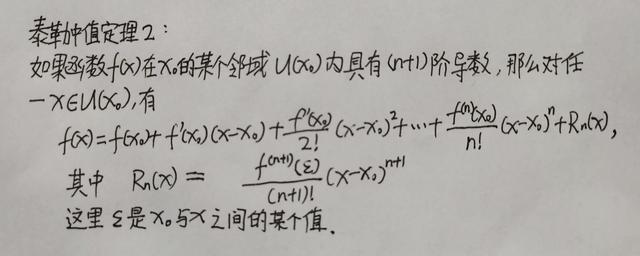 泰勒中值定理2:
如果函数f(x)在x₀的某个邻域U(x₀)内具有(n+1)阶导数,那么对任
一x∈U(x₀),有
f(x)=f(x₀)+f'(x₀)(x-x₀)+f''(x₀)/2!(x-x₀)²+…+f⁽ⁿ⁾(x₀)/n!(x-x₀)ⁿ+Rn(x),
其中 Rn(x)= f⁽ⁿ⁺¹⁾(ξ)/(n+1)!(x-x₀)ⁿ⁺¹
这里ξ是x₀与x之间的某个值.